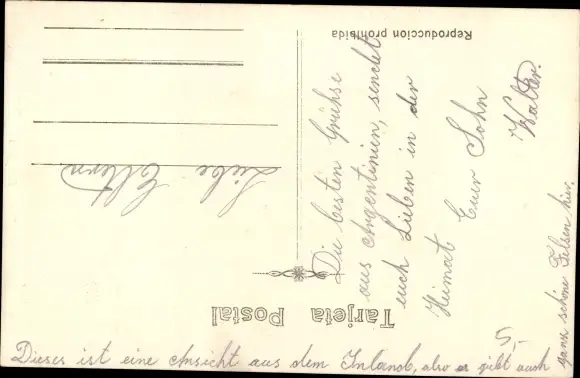 Tarjeta Postal
Reproduccion prohibida
Liebe Eltern
Die besten Grühse
aus Argentinien, sendet
euch Lieben in der
Heimat Euer Sohn
Walter.
Dieses ist eine Ansicht aus dem Inland, also es gibt auch
ganz schöne Felsen hier.
5,-